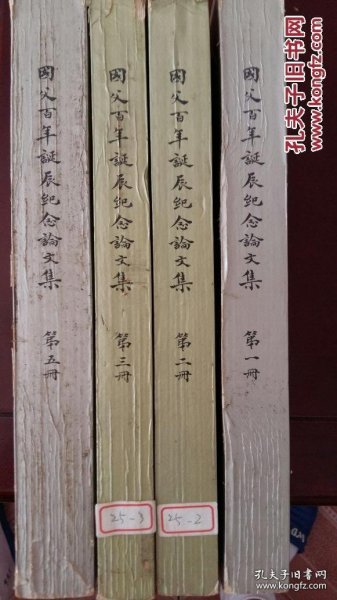 國父百年誕辰紀念論文集 第五冊
國父百年誕辰紀念論文集 第三冊
國父百年誕辰紀念論文集 第二冊
國父百年誕辰紀念論文集 第一冊
25-3
25-2
孔夫子旧书网
www.kongfz.com
孔夫子旧书网